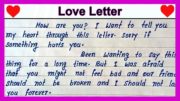 Love Letter
How are you? I want to tell you
my heart through this letter. sorry if
something hurts you.
Been wanting to say this
thing for a long time. But I was afraid
that you might not feel bad and our friend
should not be broken and I should not lo
you forever.